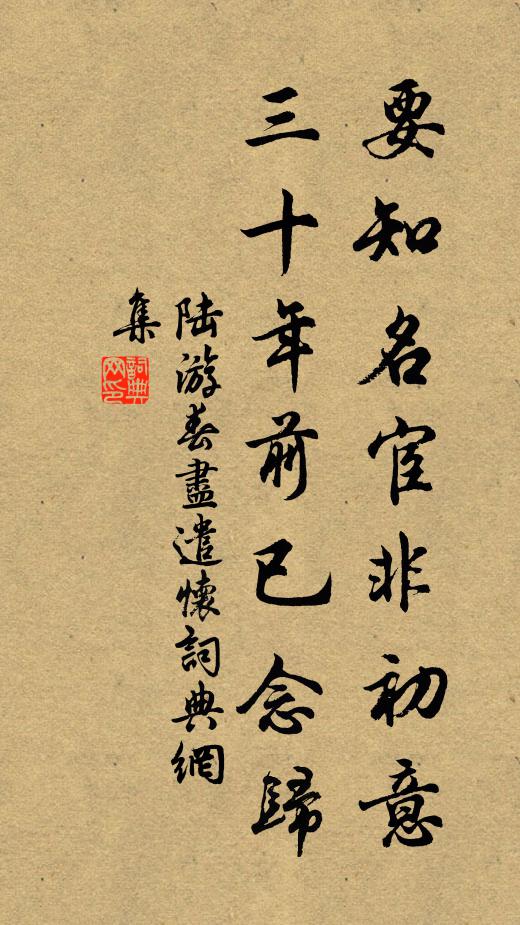 要知名宦非初意
三十年前已念歸
陸游春盡遣懷詞典網
集
詞典網印